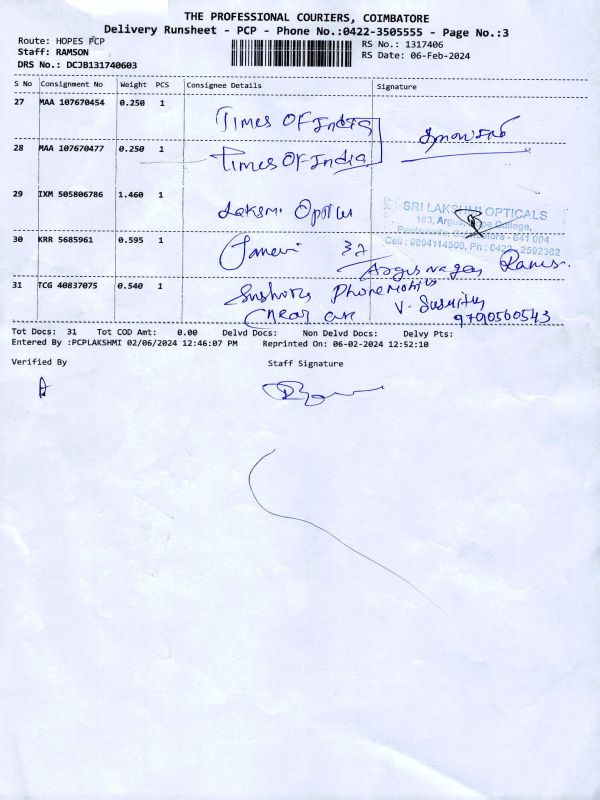 THE PROFESSIONAL COURIERS, COIMBATORE
Delivery Runsheet - PCP - Phone No.:0422-3505555 - Page No.:3
Route: HOPES PCP
RS No.: 1317406
Staff: RAMSON
RS Date: 06-Feb-2024
DRS No.: DCJB131740603
S No Consignment No Weight PCS Consignee Details Signature
27 MAA 107670454 0.250 1 Times Of India
28 MAA 107670477 0.250 1 Times Of India
29 IXM 505806786 1.460 1
SRI LAKSHMI OPTICALS
Cell : 9894114500, Ph : 0422 - 2592362
30 KRR 5685961 0.595 1 37
31 TCG 40837075 0.540 1
9790560543
Tot Docs: 31 Tot COD Amt: 0.00 Delvd Docs: Non Delvd Docs: Delvy Pts:
Entered By :PCPLAKSHMI 02/06/2024 12:46:07 PM Reprinted On: 06-02-2024 12:52:10
Verified By Staff Signature